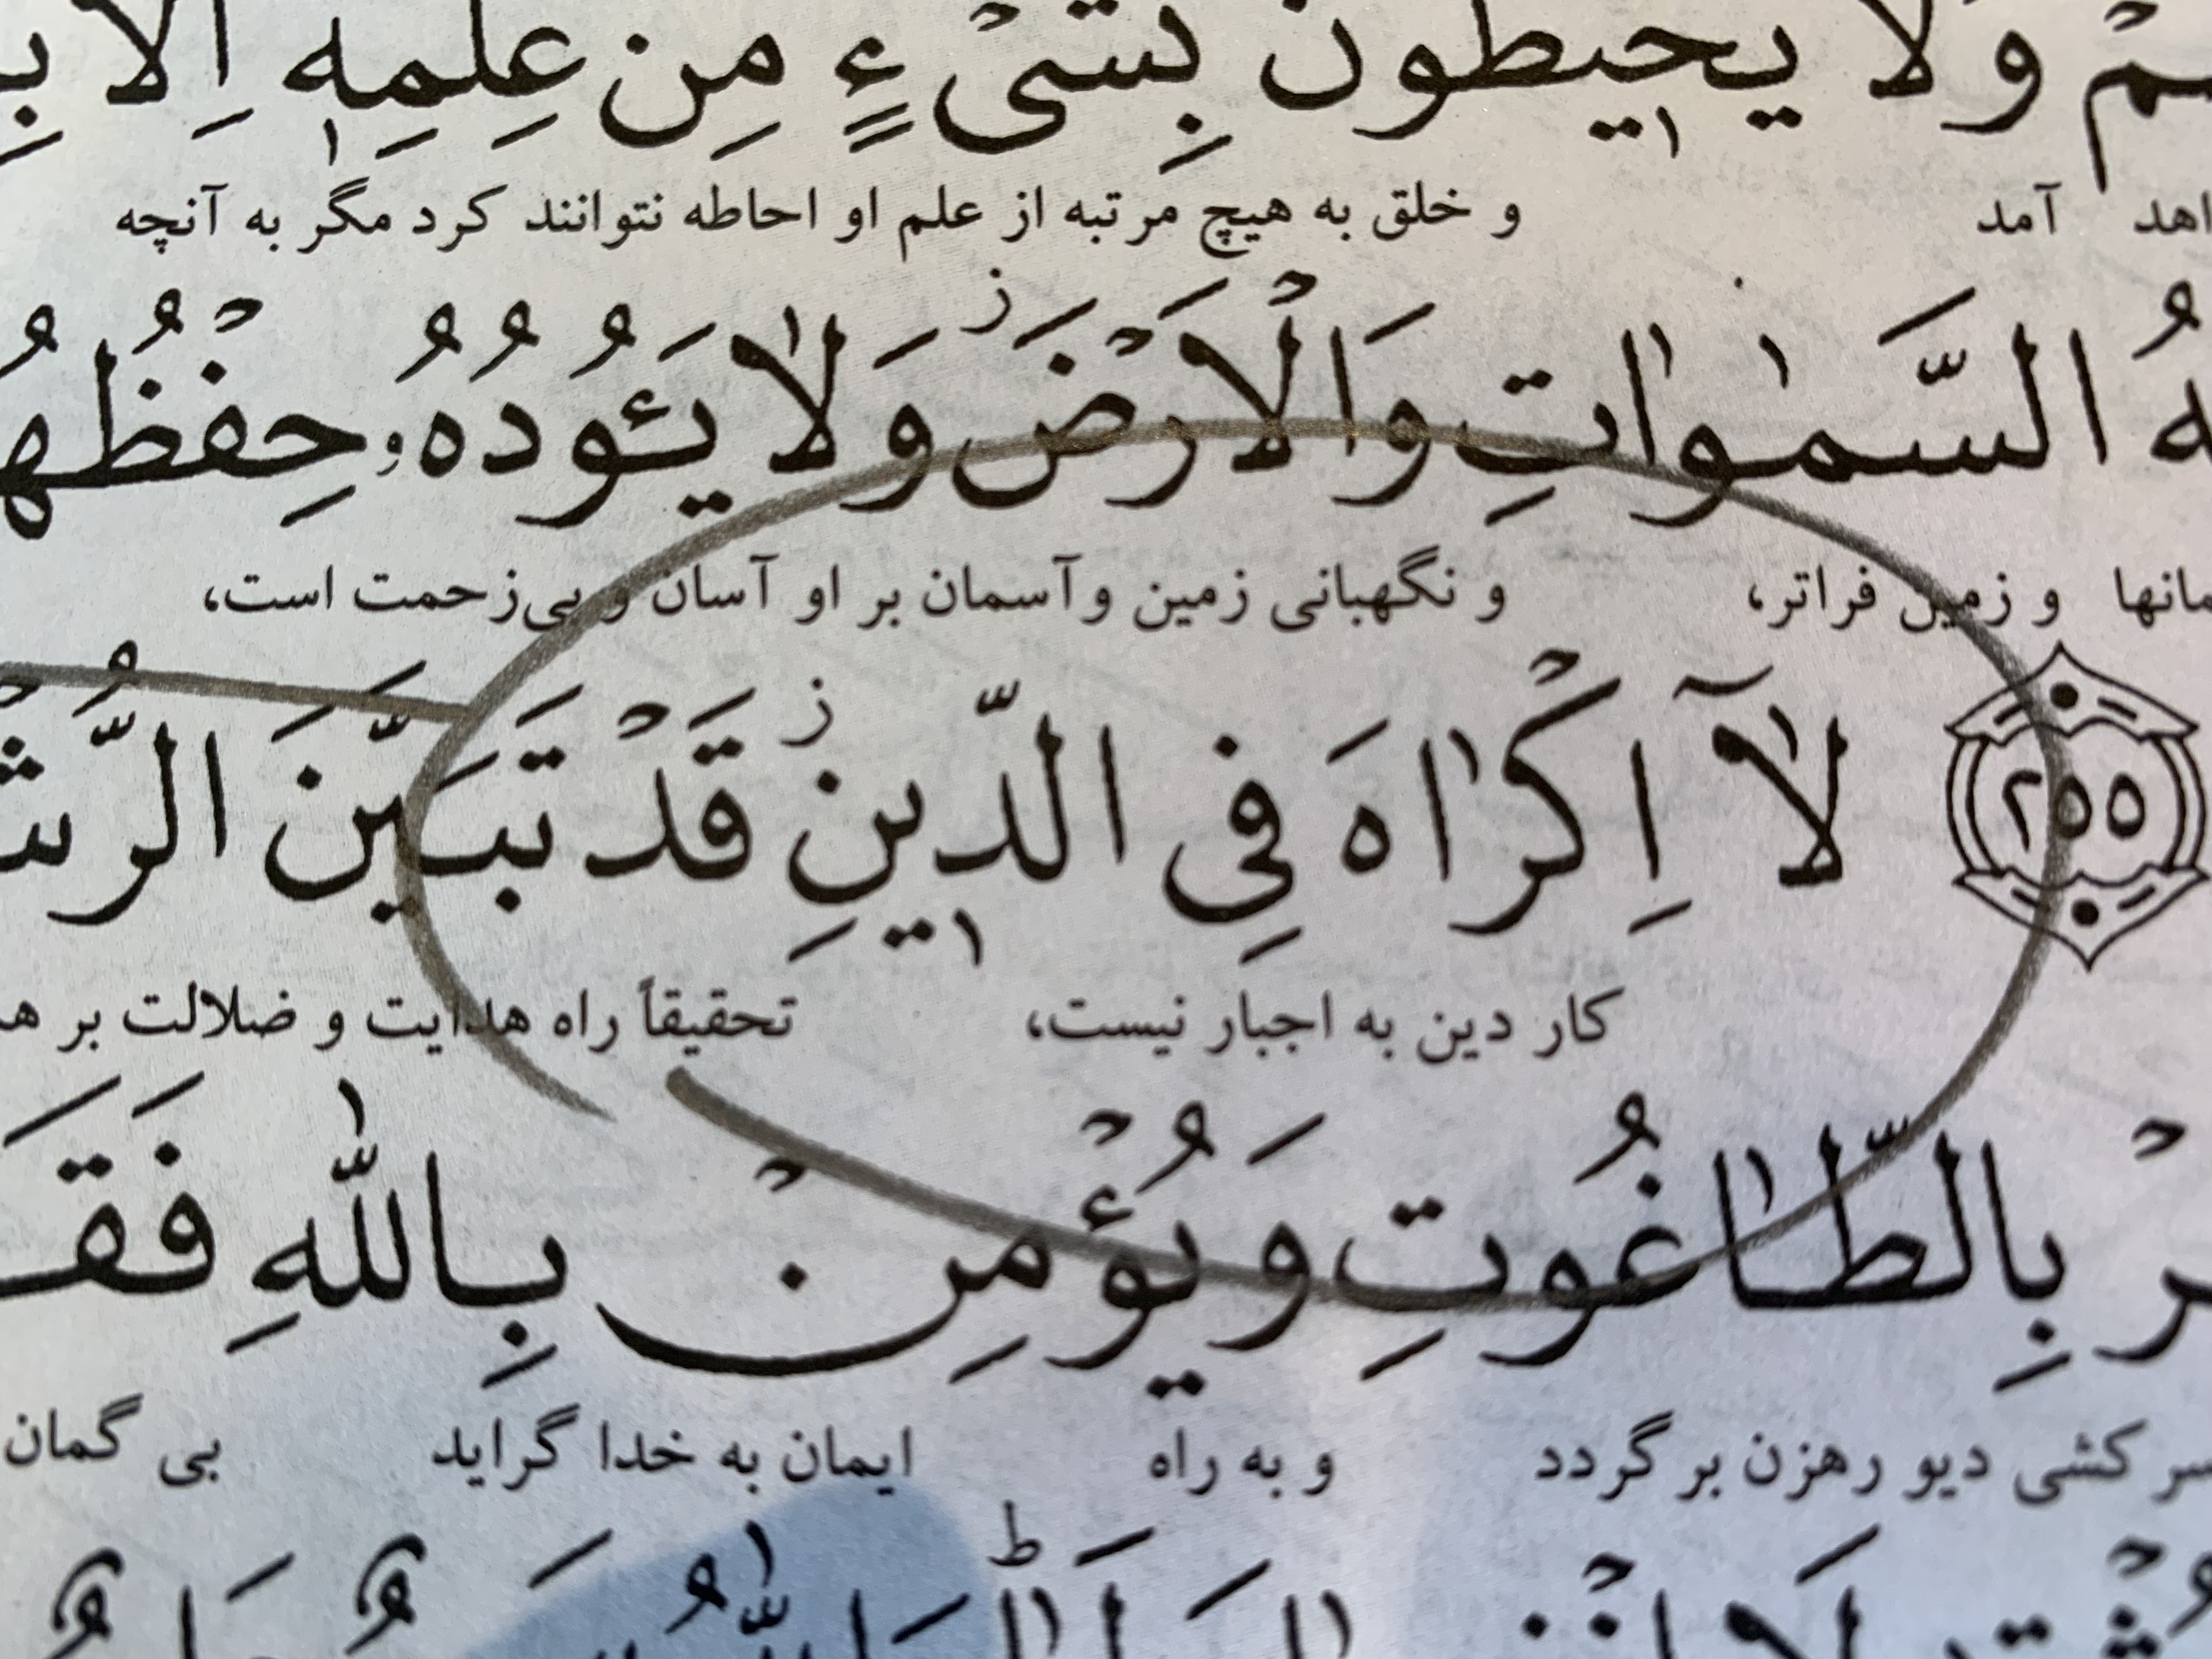 وَلا يُحيطُونَ بِشَىْءٍ مِن عِلمِهِ اِلّا
آمد و خلق به هیچ مرتبه از علم او احاطه نتوانند کرد مگر به آنچه
السَّمٰواٰتِ وَالْاَرْضَ ز وَلاٰ يَـُٔودُهُ حِفْظُهُ
و زمین فراتر، و نگهبانی زمین و آسمان بر او آسان و بی‌زحمت است،
۲۵۵ لآٰ اِكْرٰاهَ فِى الدّينِ ز قَدْ تَبَيَّنَ
کار دین به اجبار نیست، تحقیقاً راه هدایت و ضلالت بر
بِالطّٰاغُوتِ وَيُؤْمِنْ بِاللّٰهِ
سرکشی دیو رهزن برگردد و به راه ایمان به خدا گراید بی گمان